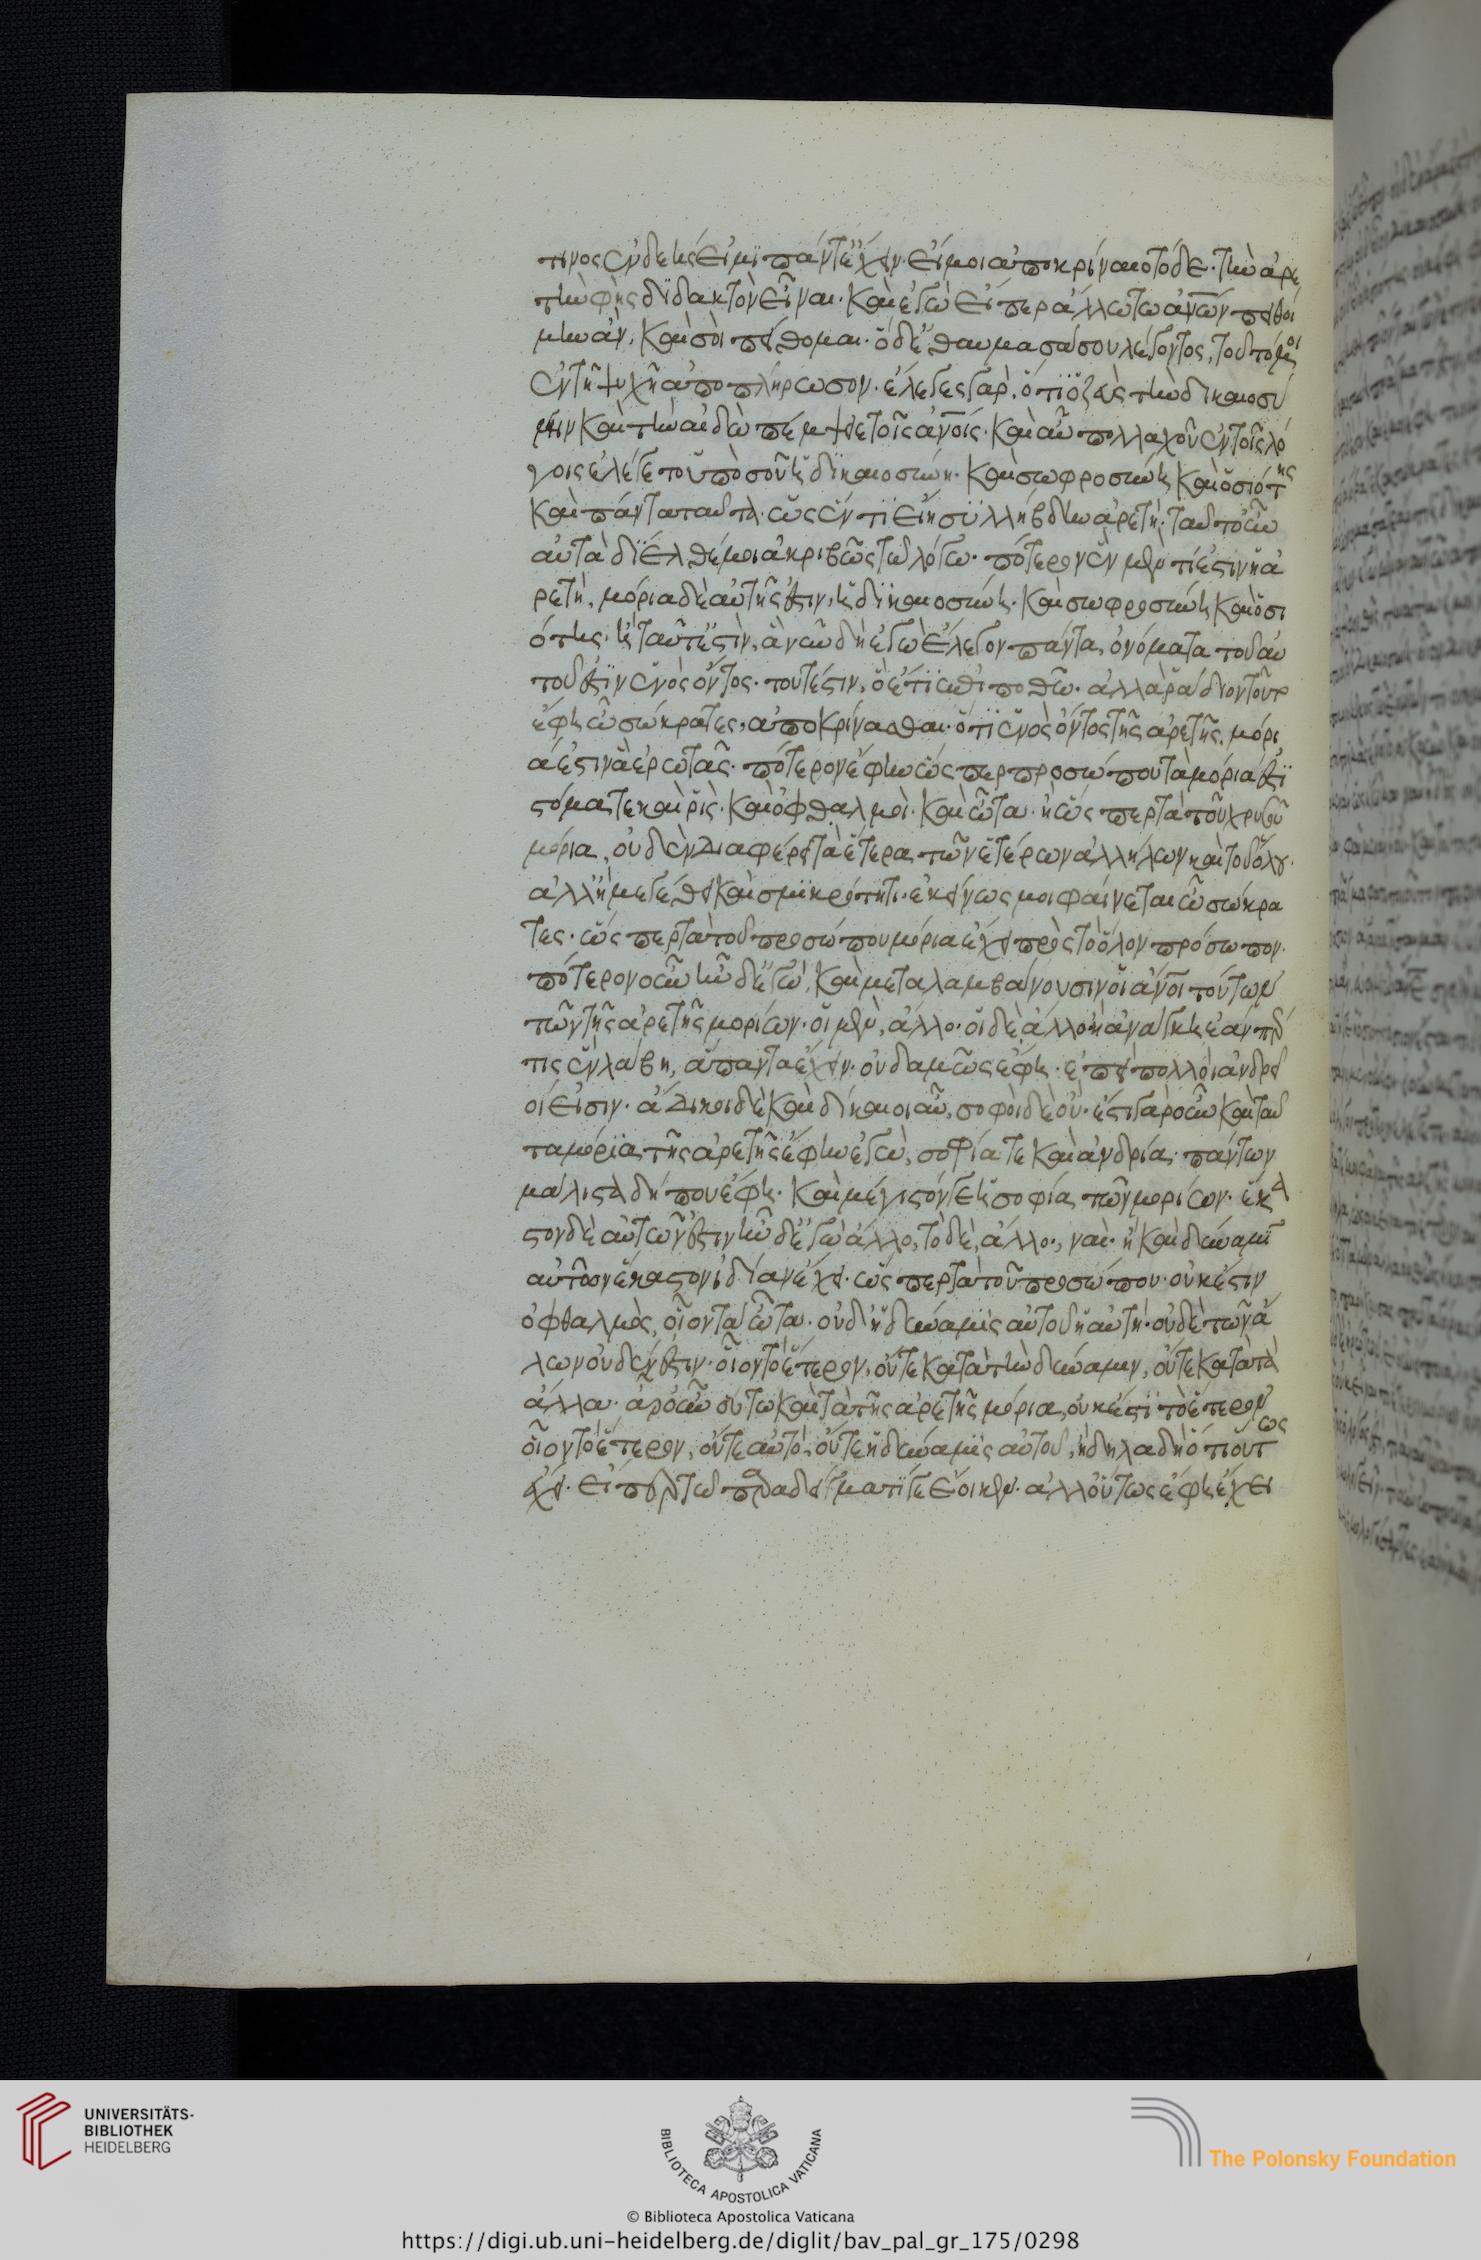 τινος ἐνδεής εἰμι πάντ' ἔχειν. εἴ μοι ἀποκρίναιο τόδε. τὴν ἀρε
τὴν φῂς διδακτὸν εἶναι. καὶ ἐγὼ εἴπερ ἄλλω τω ἀνῶν πειθοί
μην ἂν, καὶ σοὶ πείθομαι. ὃ δ' ἐθαύμασά σου λέγοντος, τοῦτό μοι
ἐν τῆ ψυχῆ ἀποπλήρωσον. ἔλεγες γὰρ, ὅτι ὁ ζεὺς τὴν δικαιοσύ
νην καὶ τὴν αἰδῶ πέμψειε τοῖς ἀνοις. καὶ αὖ πολλαχοῦ ἐν τοῖς λό
γοις ἐλέγετο ὑπὸ σοῦ ἡ δικαιοσύνη. καὶ σωφροσύνη καὶ ὁσιότης
καὶ πάντα ταῦτα. ὡς ἕν τι εἴη συλλήβδην ἀρετή. ταῦτ' οὖν
αὐτὰ δίελθέ μοι ἀκριβῶς τῶ λόγω. πότερον ἓν μέν τί ἐστιν ἡ ἀ
ρετή, μόρια δὲ αὐτῆς ἐστιν, ἡ δικαιοσύνη. καὶ σωφροσύνη καὶ ὁσι
ότης. ἢ ταῦτ' ἐστὶν, ἃ νῦν δὴ ἐγὼ ἔλεγον πάντα, ὀνόματα τοῦ αὐ
τοῦ ἐστὶν ἑνὸς ὄντος. τοῦτ' ἐστιν, ὃ ἔτι ἐπιποθῶ. ἀλλὰ ῥάδιον τοῦτ'
ἔφη ὦ σώκρατες, ἀποκρίνασθαι. ὅτι ἑνὸς ὄντος τῆς ἀρετῆς, μόρι
ά ἐστιν ἃ ἐρωτᾶς. πότερον ἔφην ὥσπερ προσώπου τὰ μόρια ἐστὶ
στόμα τε καὶ ῥὶς. καὶ ὀφθαλμοὶ. καὶ ὦτα. ἢ ὥσπερ τὰ τοῦ χρυσοῦ
μόρια, οὐδὲν διαφέρει τὰ ἕτερα τῶν ἑτέρων ἀλλήλων καὶ τοῦ ὅλου.
ἀλλ' ἢ μεγέθει καὶ σμικρότητι. ἐκείνως μοι φαίνεται ὦ σώκρα
τες. ὥσπερ τὰ τοῦ προσώπου μόρια ἔχει πρὸς τὸ ὅλον πρόσωπον.
πότερον οὖν ἦν δ' ἐγώ, καὶ μεταλαμβάνουσιν οἱ ἄνοι τούτων
τῶν τῆς ἀρετῆς μορίων. οἱ μὲν, ἄλλο. οἱ δὲ ἄλλο. ἢ ἀνάγκη ἐάν πέρ
τις ἓν λάβη, ἅπαντα ἔχειν. οὐδαμῶς ἔφη. ἐπεὶ πολλοὶ ἀνδρεῖ
οί εἰσιν. ἄδικοι δὲ καὶ δίκαιοι αὖ, σοφοὶ δὲ οὔ. ἔστι γὰρ οὖν καὶ ταῦ
τα μόρια τῆς ἀρετῆς ἔφην ἐγὼ, σοφία τε καὶ ἀνδρία. πάντων
μάλιστα δήπου ἔφη. καὶ μέγιστόν γε ἡ σοφία τῶν μορίων. ἕκα
στον δὲ αὐτῶν ἐστιν ἦν δ' ἐγὼ ἄλλο, τὸ δὲ, ἄλλο., ναί. ἢ καὶ δύναμιν
αὐτῶν ἕκαστον ἰδίαν ἔχει. ὥσπερ τὰ τοῦ προσώπου. οὐκ ἔστιν
ὀφθαλμὸς, οἷον τὰ ὦτα. οὐδ' ἡ δύναμις αὐτοῦ ἡ αὐτή. οὐδὲ τῶν ἄ
λλων οὐδέν ἐστιν. οἷον τὸ ἕτερον, οὔτε κατὰ τὴν δύναμιν, οὔτε κατὰ τὰ
ἄλλα. ἆρ' οὖν οὕτω καὶ τὰ τῆς ἀρετῆς μόρια, οὐκ ἔστι τὸ ἕτερον
οἷον τὸ ἕτερον, οὔτε αὐτὸ, οὔτε ἡ δύναμις αὐτοῦ, ἢ δηλαδὴ ὅτι οὕτως
ἔχει. εἴπερ τῶ παραδείγματί γε ἔοικεν. ἀλλ' οὕτως ἔφη ἔχει
UNIVERSITÄTS-
BIBLIOTHEK
HEIDELBERG
BIBLIOTECA APOSTOLICA VATICANA
The Polonsky Foundation
© Biblioteca Apostolica Vaticana
https://digi.ub.uni-heidelberg.de/diglit/bav_pal_gr_175/0298